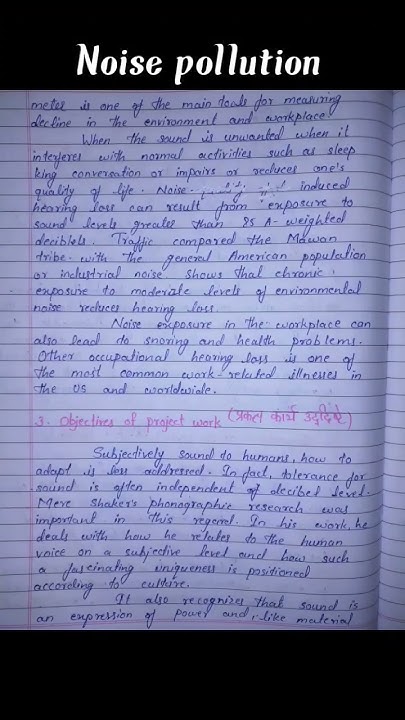 Noise pollution
meter is one of the main tools for measuring
decline in the environment and workplace
When the sound is unwanted when it
interferes with normal activities such as sleep
king conversation or impairs or reduces one's
quality of life. Noise. induced
hearing loss can result from exposure to
sound levels greater than 85 A-weighted
decibels. Traffic compared the Mawan
tribe. with the general American population
or industrial noise shows that chronic
exposure to moderate levels of environmental
noise reduces hearing loss.
Noise exposure in the workplace can
also lead to snoring and health problems.
Other occupational hearing loss is one of
the most common work-related illnesses in
the US and worldwide.
3. Objectives of project work (प्रकल्प कार्य उद्दीष्टे)
Subjectively sound to humans, how to
adapt is less addressed. In fact, tolerance for
sound is often independent of decibel level.
Mere Shaker's phonographic research was
important in this regard. In his work, he
deals with how he relates to the human
voice on a subjective level and how such
a fascinating uniqueness is positioned
according to culture.
It also recognizes that sound is
an expression of power and, like material